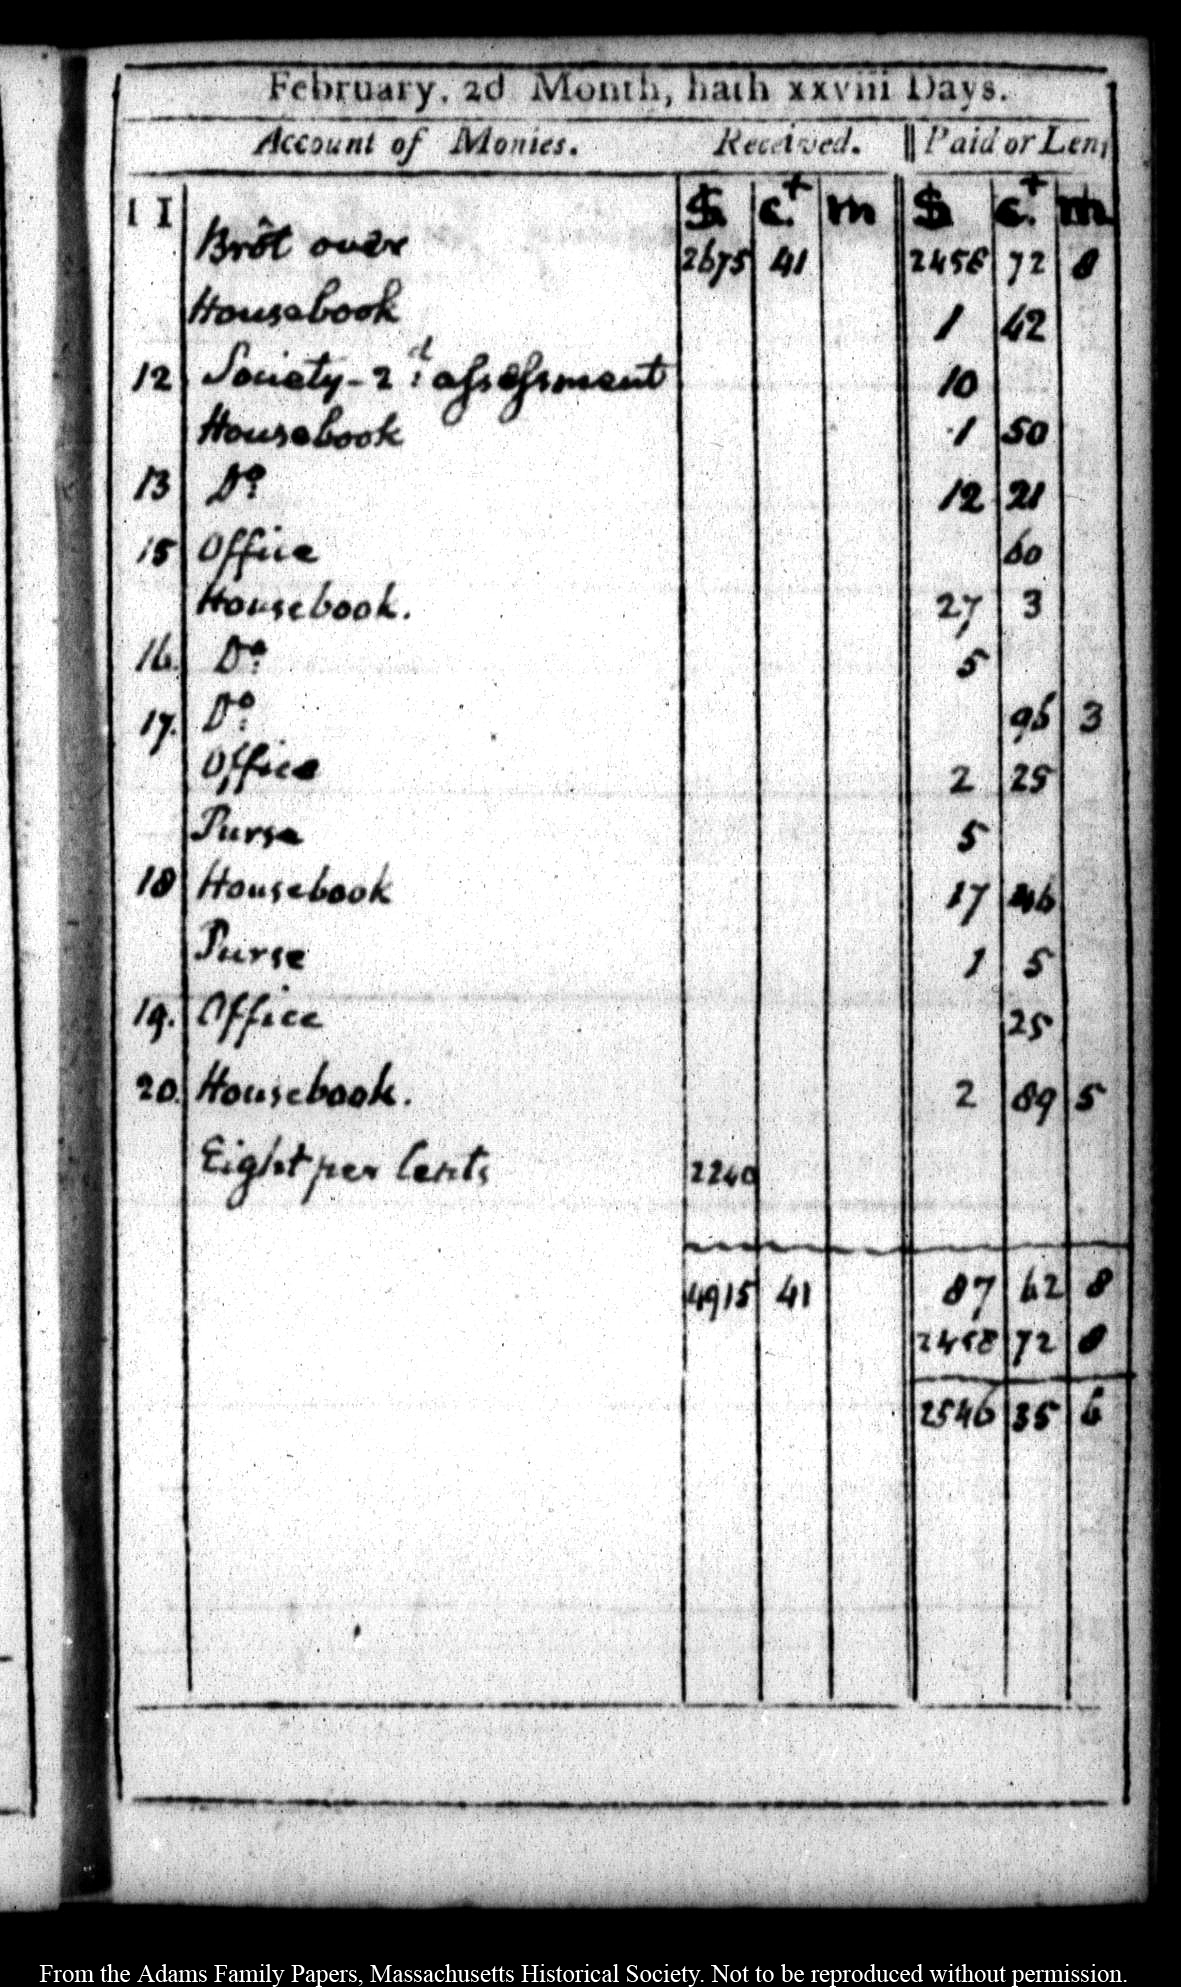 February. 2d Month, hath xxviii Days.
Account of Monies. Received. Paid or Lent
$ c.t m $ c.t m
11 Brôt over 2675 41 2458 72 8
Housebook 1 42
12 Society - 2.d assessment 10
Housebook 1 50
13 Do. 12 21
15 Office 60
Housebook. 27 3
16. Do. 5
17. Do. 96 3
Office 2 25
Purse 5
18 Housebook 17 46
Purse 1 5
19. Office 25
20. Housebook. 2 89 5
Eight per Cents 2240
4915 41 87 62 8
2458 72 8
2546 35 6
From the Adams Family Papers, Massachusetts Historical Society. Not to be reproduced without permission.